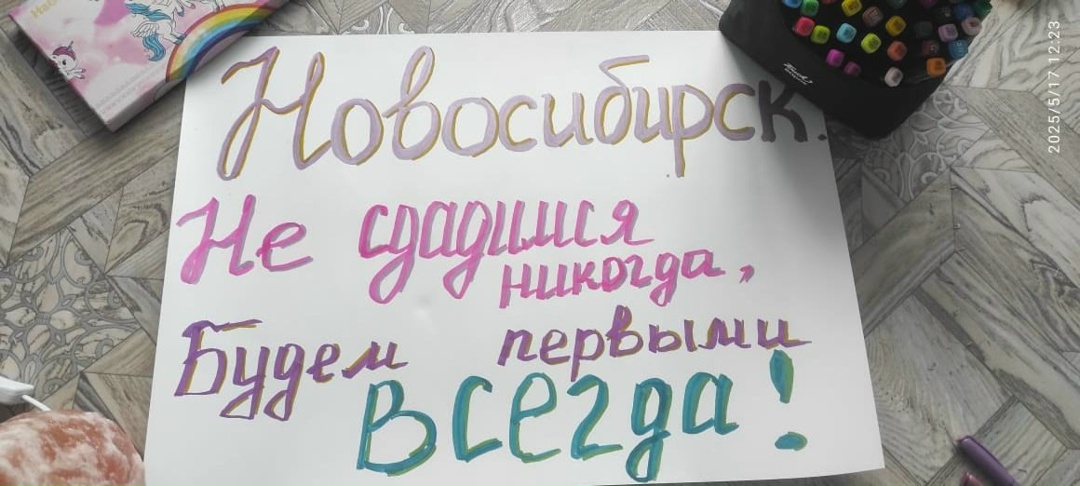 Новосибирск.
Не сдадимся
никогда,
Будем первыми
Всегда!
2025/5/17 12:23